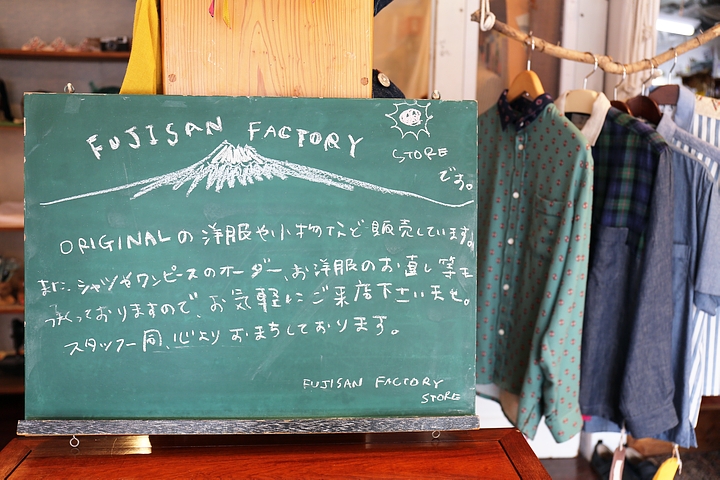 FUJISAN FACTORY
STORE
です。
ORIGINALの洋服や小物など販売しています。
また、シャツやワンピースのオーダー、お洋服のお直し等も
承っておりますので、お気軽にご来店下さいませ。
スタッフ一同、心よりおまちしております。
FUJISAN FACTORY
STORE